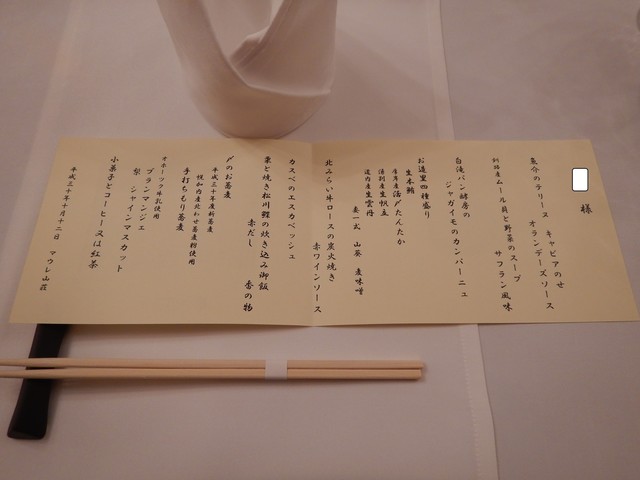 様
魚介のテリーヌ キャビアのせ
オランデーズソース
釧路産ムール貝と野菜のスープ
サフラン風味
白滝パン酵房の
ジャガイモのカンパーニュ
お造里四種盛り
生本鮪
活〆たんたか
湧別産生帆立
道内産生雲丹
妻一式 山葵
北みらい牛ロースの炭火焼き
赤ワインソース
カスベのエスカベッシュ
栗と焼き松川鰈の炊き込み御飯
赤だし 香の物
〆のお蕎麦
平成三十年度新蕎麦
幌加内産北わせ蕎麦粉使用
手打ちもり蕎麦
オホーツク牛乳使用
ブランマンジェ
梨 シャインマスカット
小菓子とコーヒー又は紅茶
平成三十年十月十二日 マウレ山荘